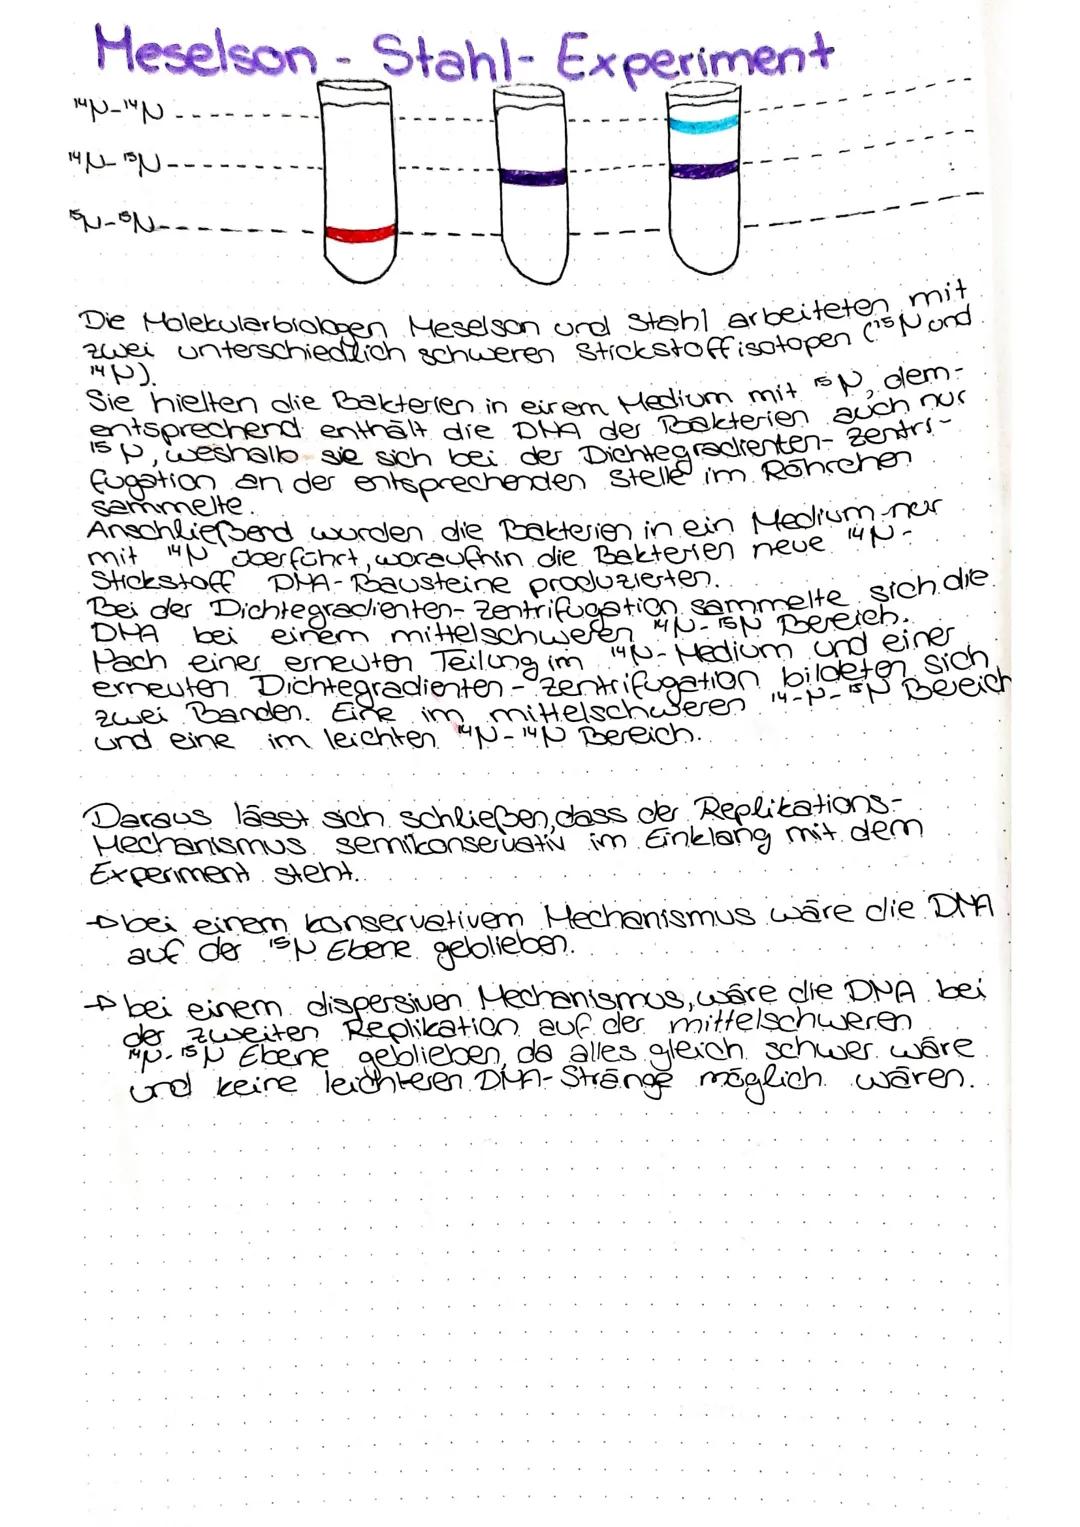 Meselson - Stahl - Experiment
¹⁴N-¹⁴N
¹⁴N-¹⁵N
¹⁵N-¹⁵N
Die Molekularbiologen Meselson und Stahl arbeiteten mit
zwei unterschiedlich schweren Stickstoffisotopen (¹⁵N und
¹⁴N).
Sie hielten die Bakterien in einem Medium mit ¹⁵N, dem-
entsprechend enthält die DNA der Bakterien auch nur
¹⁵N, weshalb sie sich bei der Dichtegradienten- Zentri-
fugation an der entsprechenden Stelle im Röhrchen
sammelte.
Anschließend wurden die Bakterien in ein Medium nur
mit ¹⁴N überführt, woraufhin die Bakterien neue ¹⁴N-
Stickstoff DNA-Bausteine produzierten.
Bei der Dichtegradienten-Zentrifugation sammelte sich die
DNA bei einem mittelschweren ¹⁴N-¹⁵N Bereich.
Nach einer erneuten Teilung im ¹⁴N-Medium und einer
erneuten Dichtegradienten-Zentrifugation bildeten sich
zwei Banden. Eine im mittelschweren ¹⁴-N-¹⁵N Bereich
und eine im leichten ¹⁴N-¹⁴N Bereich.
Daraus lässt sich schließen, dass der Replikations-
Mechanismus semikonservativ im Einklang mit dem
Experiment steht.
→ bei einem konservativem Mechanismus wäre die DNA
auf der ¹⁵N Ebene geblieben.
→ bei einem dispersiven Mechanismus, wäre die DNA bei
der zweiten Replikation auf der mittelschweren
¹⁴N-¹⁵N Ebene geblieben, da alles gleich schwer wäre
und keine leichteren DNA-Stränge möglich wären.